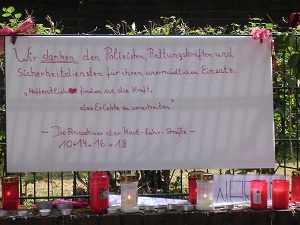 Wir danken den Polizisten, Rettungskräften und
Sicherheitdiensten für ihren unermüdlichen Einsatz.
„Hoffentlich finden sie die Kraft,
das Erlebte zu verarbeiten"
- Die Anwohner der Karl-Lehr-Straße -
10+14+16+18